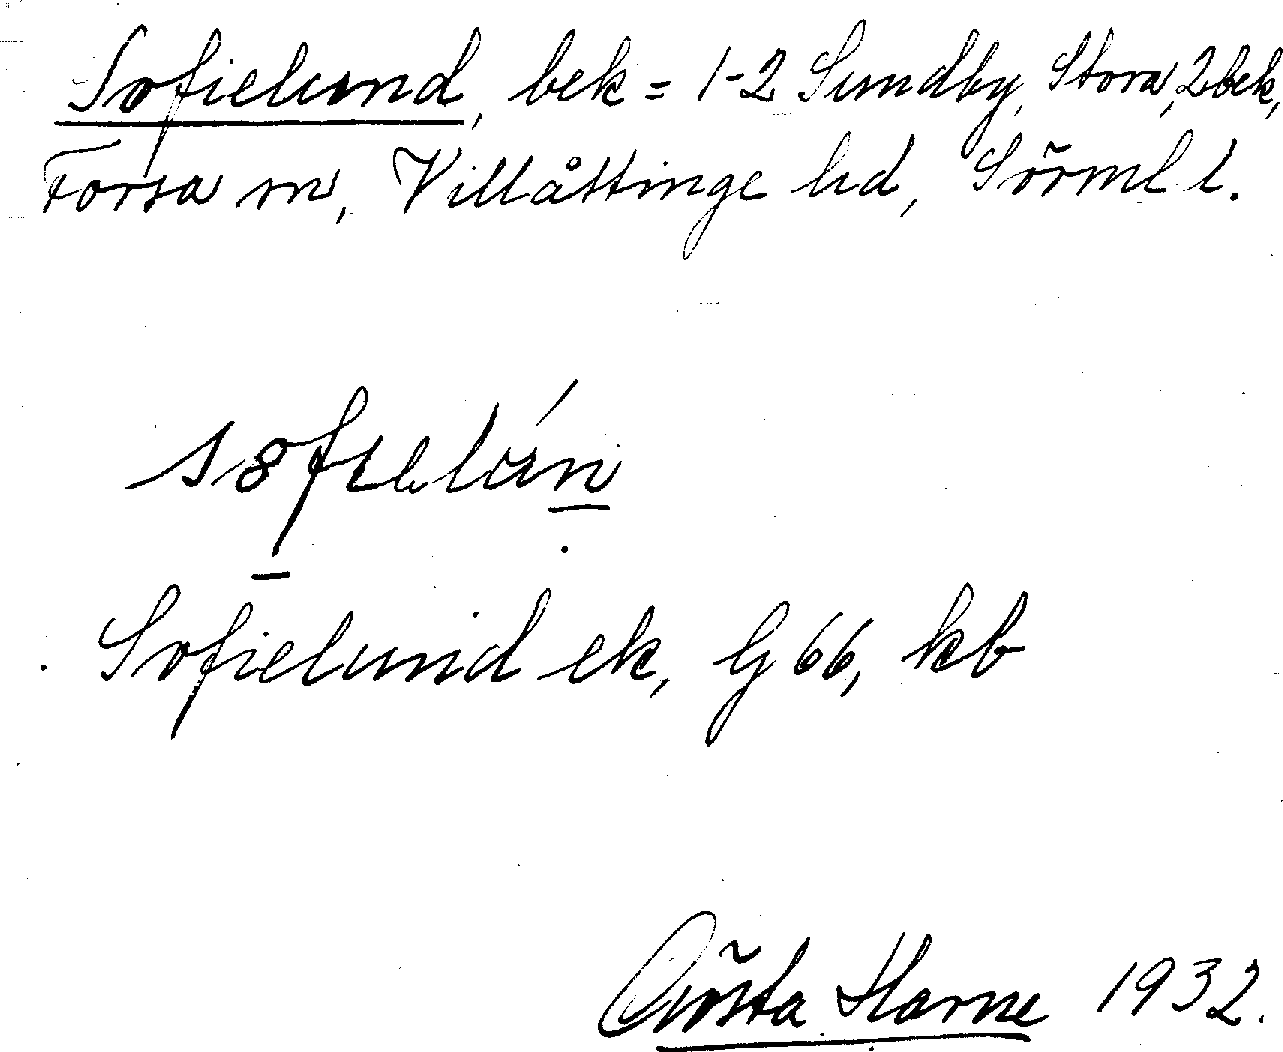 Sofielund, bek = 1-2 Sundby, Stora, 2 bek,
Forsa sn, Villåttinge hd, Sörml l.
Sofielund ek, G 66, kb
Gösta Harne 1932.